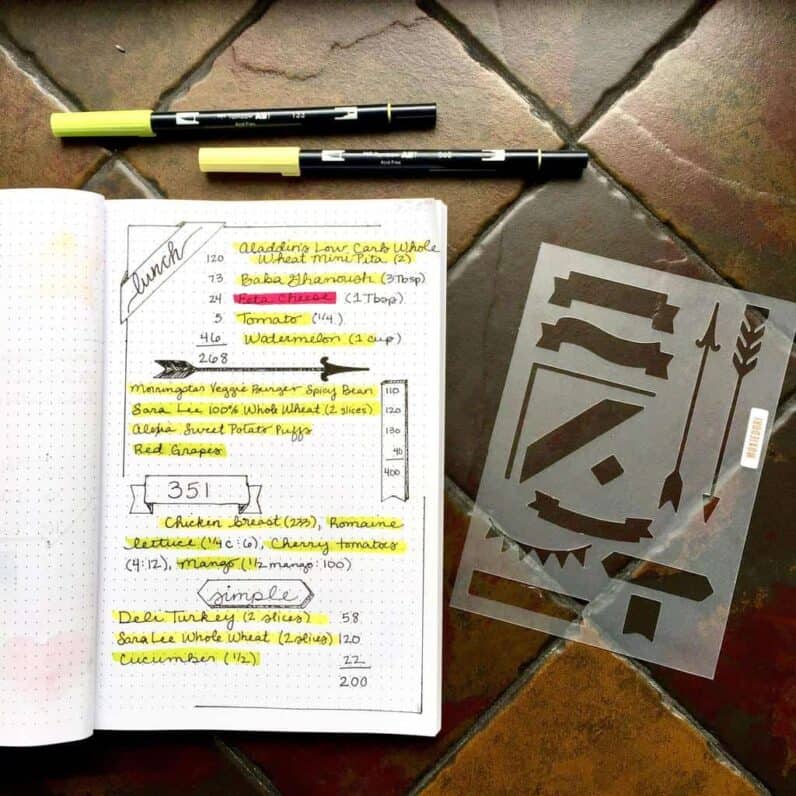 Tombow ABT 133
Acid Free
Tombow ABT
Acid Free
lunch
Aladdin's Low Carb Whole
120 Wheat Mini Pita (2)
73 Baba Ghanoush (3 Tbsp)
24 Feta Cheese (1 Tbsp)
5 Tomato (1/4)
46 Watermelon (1 cup)
268
Morningstar Veggie Burger Spicy Bean 110
Sara Lee 100% Whole Wheat (2 slices) 120
Alexia Sweet Potato Puffs 130
Red Grapes 40
400
351
Chicken breast (233), Romaine
lettuce (1/4 c : 6), Cherry tomatoes
(4 : 12), Mango (1/2 mango : 100)
simple
Deli Turkey (2 slices) 58
Sara Lee Whole Wheat (2 slices) 120
Cucumber (1/2) 22
200
MOXIEDORI